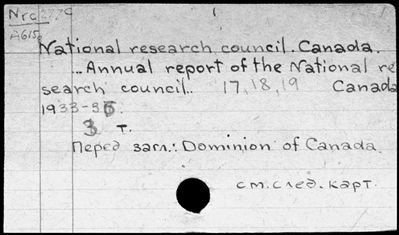 Nrc 277c
A615
National research council. Canada.
...Annual report of the National re
search council. 17, 18, 19 Canada
1933-36.
3 т.
Перед загл.: Dominion of Canada.
см. след. карт.